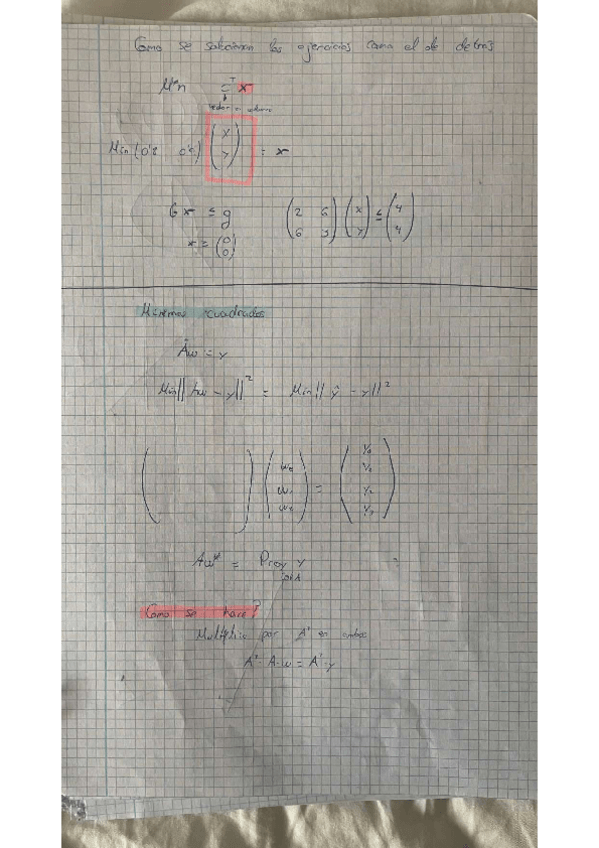 Como se solucionan los ejercicios como el de detras
Min c^T x
Min (0'2 0'9) (x y) = x
G x ≤ g (2 6 6 3) (x y) ≤ (4 4)
x ≥ (0 0)
Minimos cuadrados
Aw = y
Min||Aw - y||² = Min||ŷ - y||²
( ) (w₀ w₁ w₂) = (y₀ y₁ y₂ y₃)
Aw* = Proy y
Col A
Como se hace?
Multiplico por Aᵗ en ambos
Aᵗ·A·w = Aᵗ·y